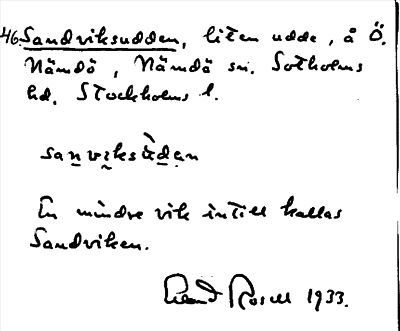 46 Sandviksudden, liten udde, å Ö.
Nämdö, Nämdö sn. Sotholms
hd. Stockholms l.
sanviksùdən
En mindre vik intill kallas
Sandviken.
Rosell 1933.